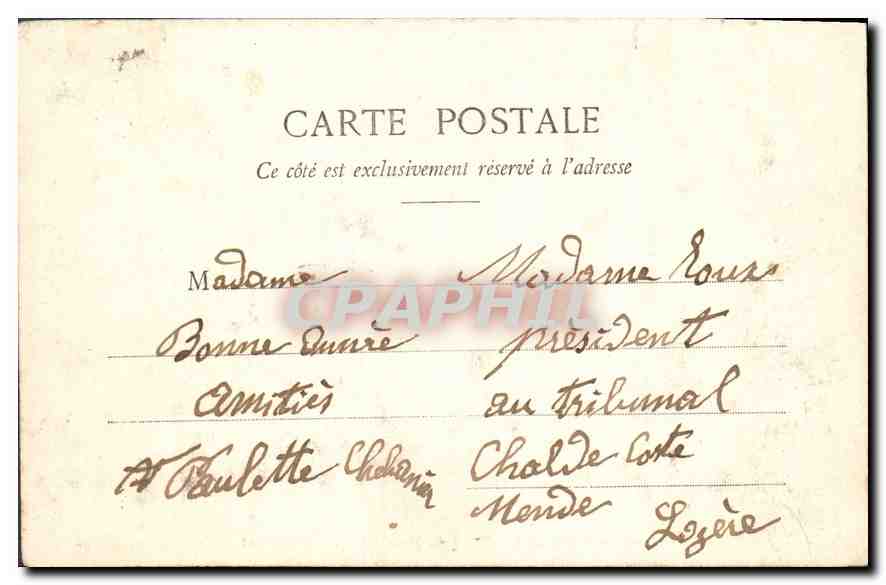 CARTE POSTALE
Ce côté est exclusivement réservé à l'adresse
Madame
Bonne année
amitiès
Paulette
Madame Roux
président
au tribunal
Chalde Coste
Mende
Lozère
CPAPHIL